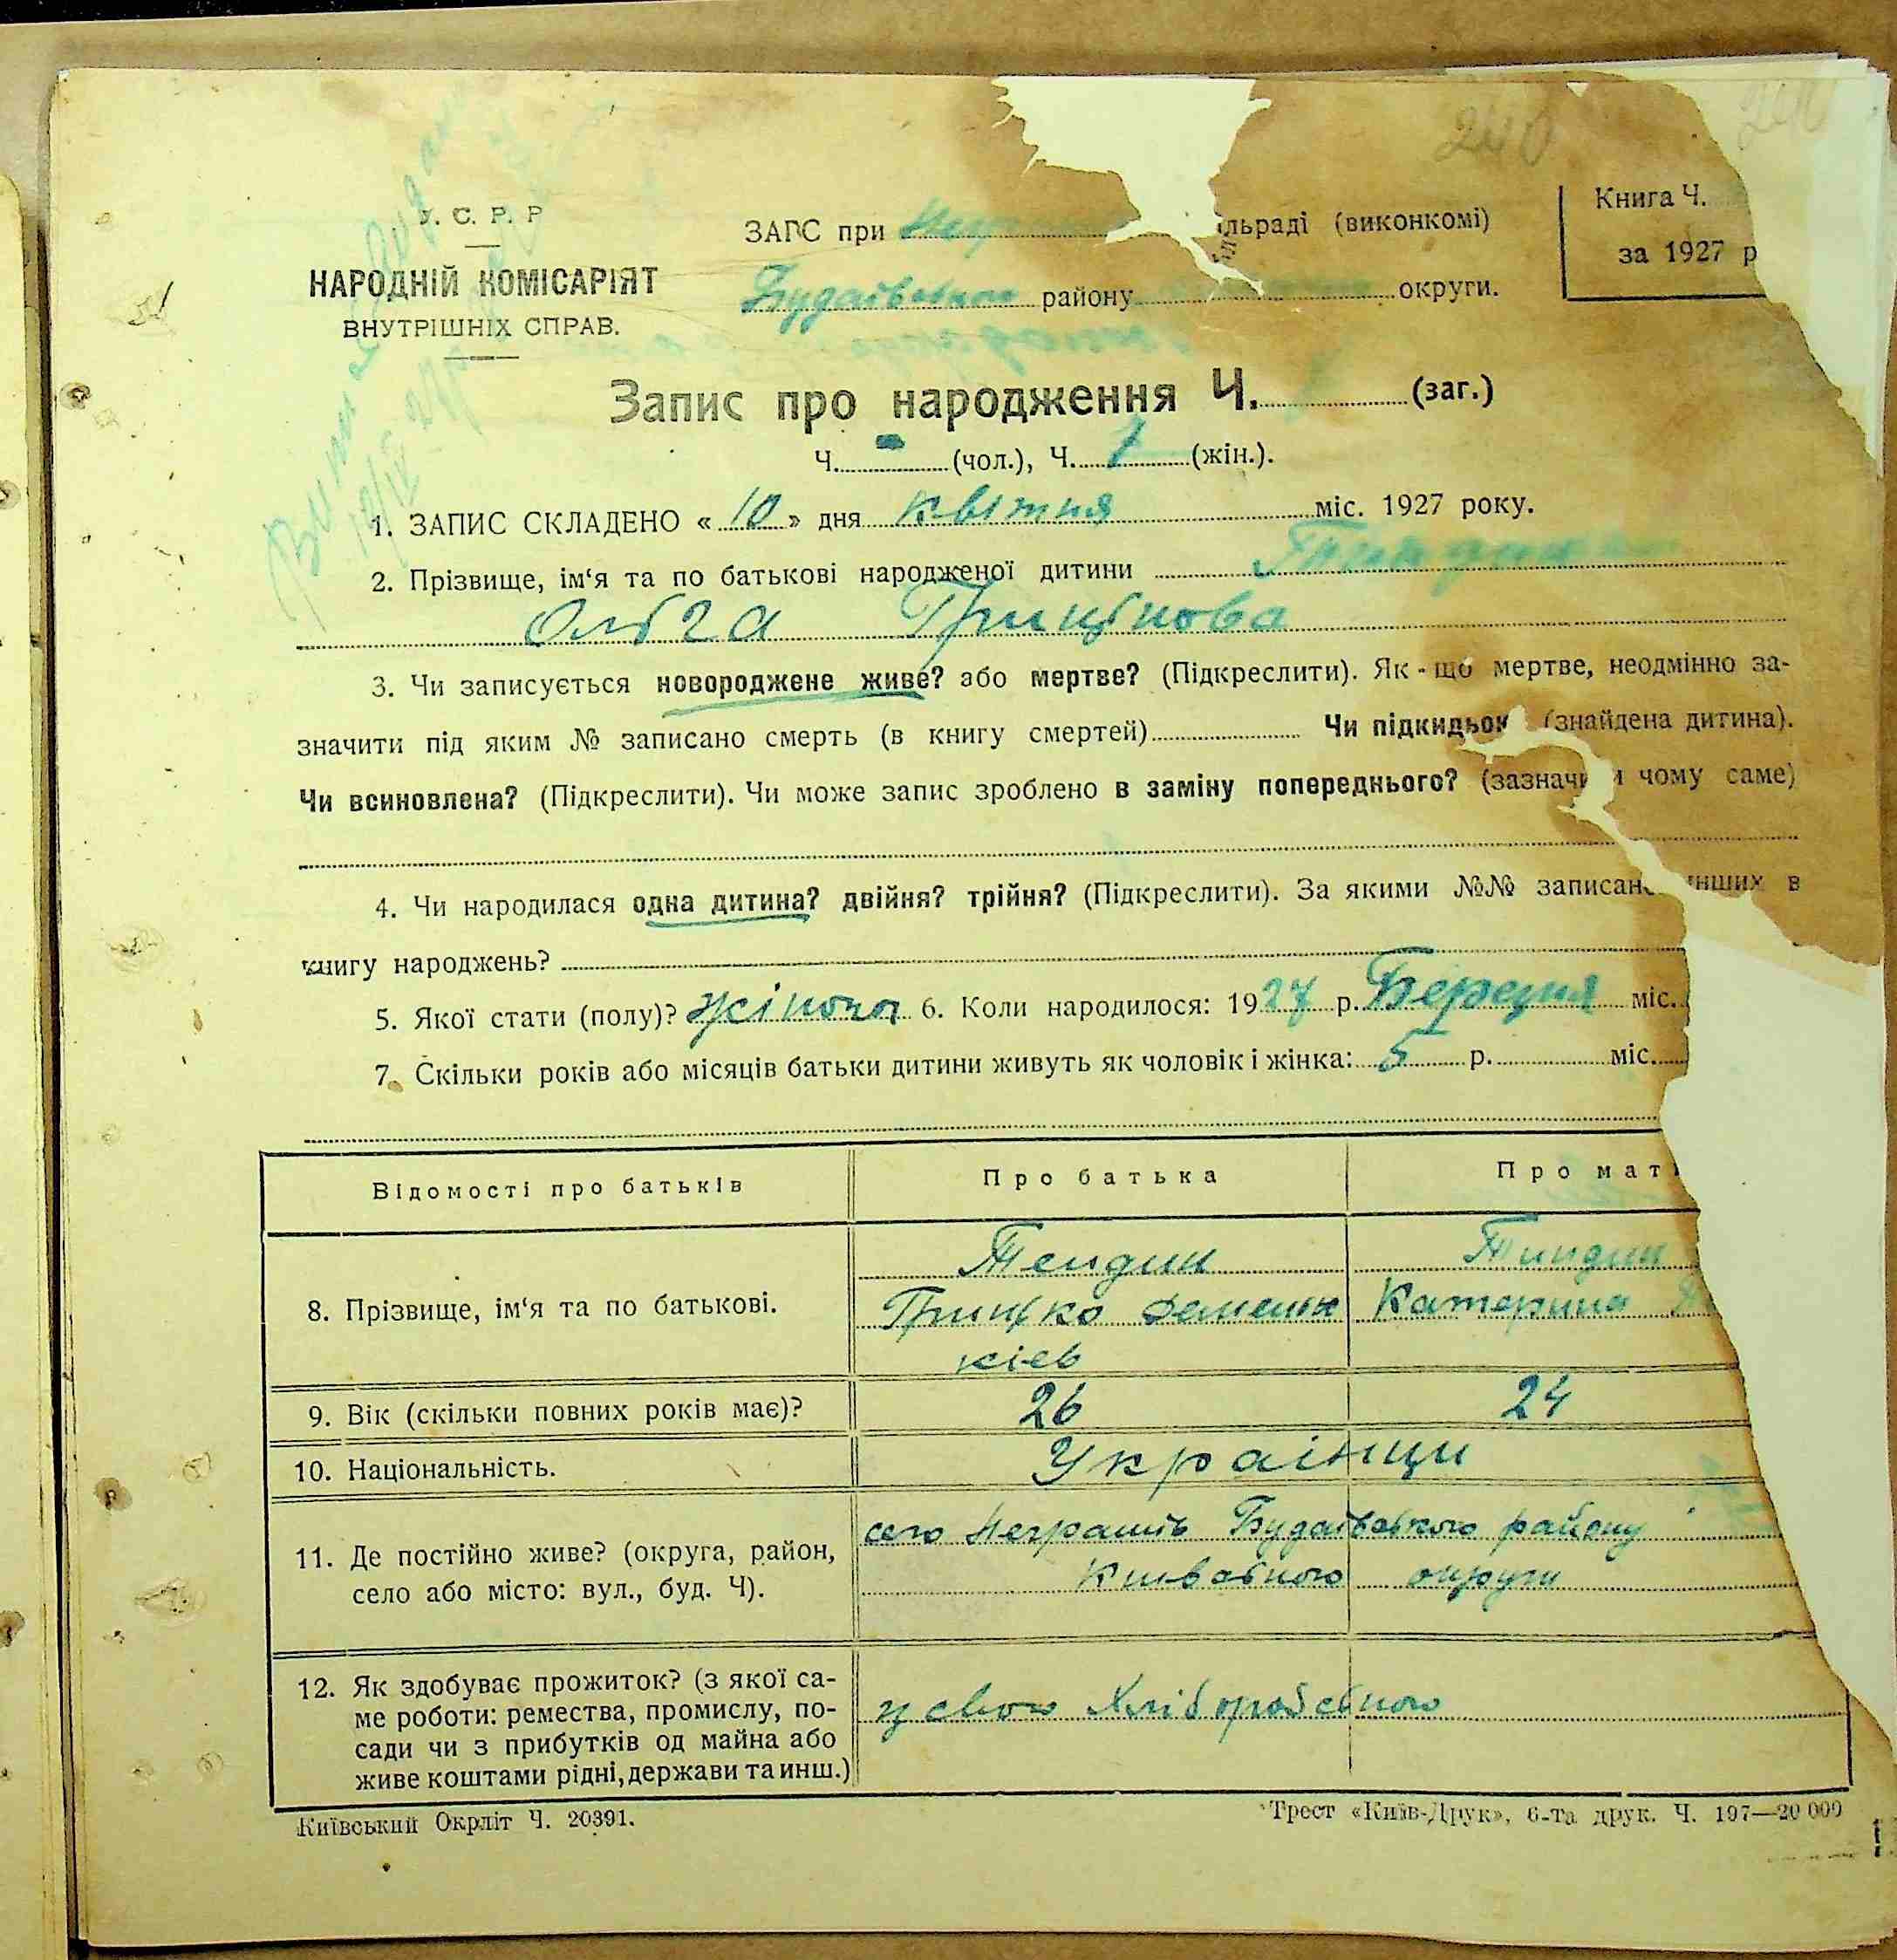 240
У. С. Р. Р
НАРОДНІЙ КОМІСАРІЯТ
ВНУТРІШНІХ СПРАВ.
ЗАГС при льраді (виконкомі)
Будаївського району округи.
Книга Ч.
за 1927 р
Запис про народження Ч. (заг.)
Ч. - (чол.), Ч. 7 (жін.).
1. ЗАПИС СКЛАДЕНО « 10 » дня квітня міс. 1927 року.
2. Прізвище, ім‘я та по батькові народженої дитини
Ольга Грицькова
3. Чи записується новороджене живе? або мертве? (Підкреслити). Як-що мертве, неодмінно за-
значити під яким № записано смерть (в книгу смертей) Чи підкидьок (знайдена дитина).
Чи всиновлена? (Підкреслити). Чи може запис зроблено в заміну попереднього? (зазначи и чому саме)
4. Чи народилася одна дитина? двійня? трійня? (Підкреслити). За якими №№ записан інших в
книгу народжень?
5. Якої стати (полу)? жіночої 6. Коли народилося: 1927 р. Березня міс.
7. Скільки років або місяців батьки дитини живуть як чоловік і жінка: 5 р. міс.
Відомості про батьків Про батька Про мат
8. Прізвище, ім‘я та по батькові.
Тендик Тиндик
Грицько Демень Катерина
кіев
9. Вік (скільки повних років має)? 26 24
10. Національність. Українци
11. Де постійно живе? (округа, район,
село або місто: вул., буд. Ч).
село Неграшів Будаївського району
Київського округи
12. Як здобуває прожиток? (з якої са-
ме роботи: ремества, промислу, по-
сади чи з прибутків од майна або
живе коштами рідні, держави та инш.)
з свого Хліборобського
Київський Окрліт Ч. 20391.
Трест «Київ-Друк», 6-та друк. Ч. 197—20 000